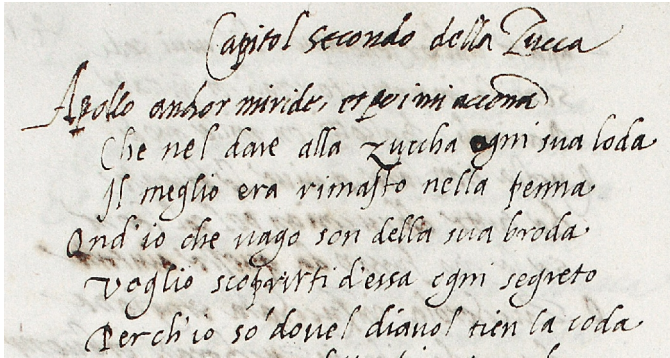 Capitol secondo della Zucca
Apollo anchor mi ride, et poi mi accena
Che nel dare alla zuccha ogni sua loda
Il meglio era rimasto nella penna
Ond'io che vago son della sua broda
Voglio scoprirti d'essa ogni segreto
Perch'io so dovel diavol tien la coda